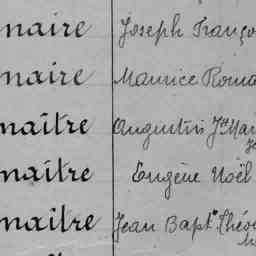 naire Joseph Franço
naire Maurice Roma
naître Augustin Jh Mai
naître Eugène Noël
naître Jean Bapte Théo